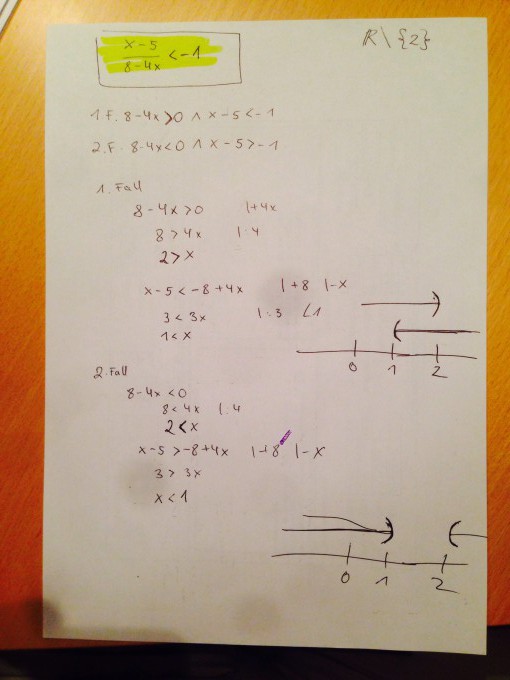 x-5 / 8-4x < -1
ℝ \ {2}
1.F. 8-4x > 0 ∧ x-5 < -1
2.F. 8-4x < 0 ∧ x-5 > -1
1. Fall
8-4x > 0 |+4x
8 > 4x |:4
2 > x
x-5 < -8+4x |+8 |-x
3 < 3x |:3
1 < x
0 1 2
2. Fall
8-4x < 0
8 < 4x |:4
2 < x
x-5 > -8+4x |+8 |-x
3 > 3x
x < 1
0 1 2